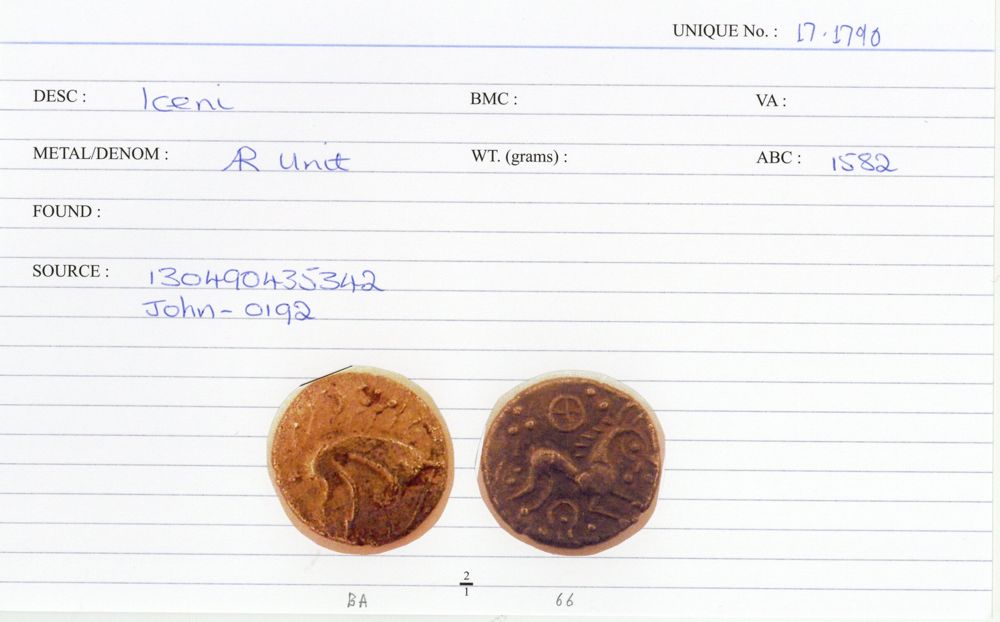 UNIQUE No. : 17·1790
DESC : Iceni BMC : VA :
METAL/DENOM : AR Unit WT. (grams) : ABC : 1582
FOUND :
SOURCE : 130490435342
John-0192
2
1
BA 66